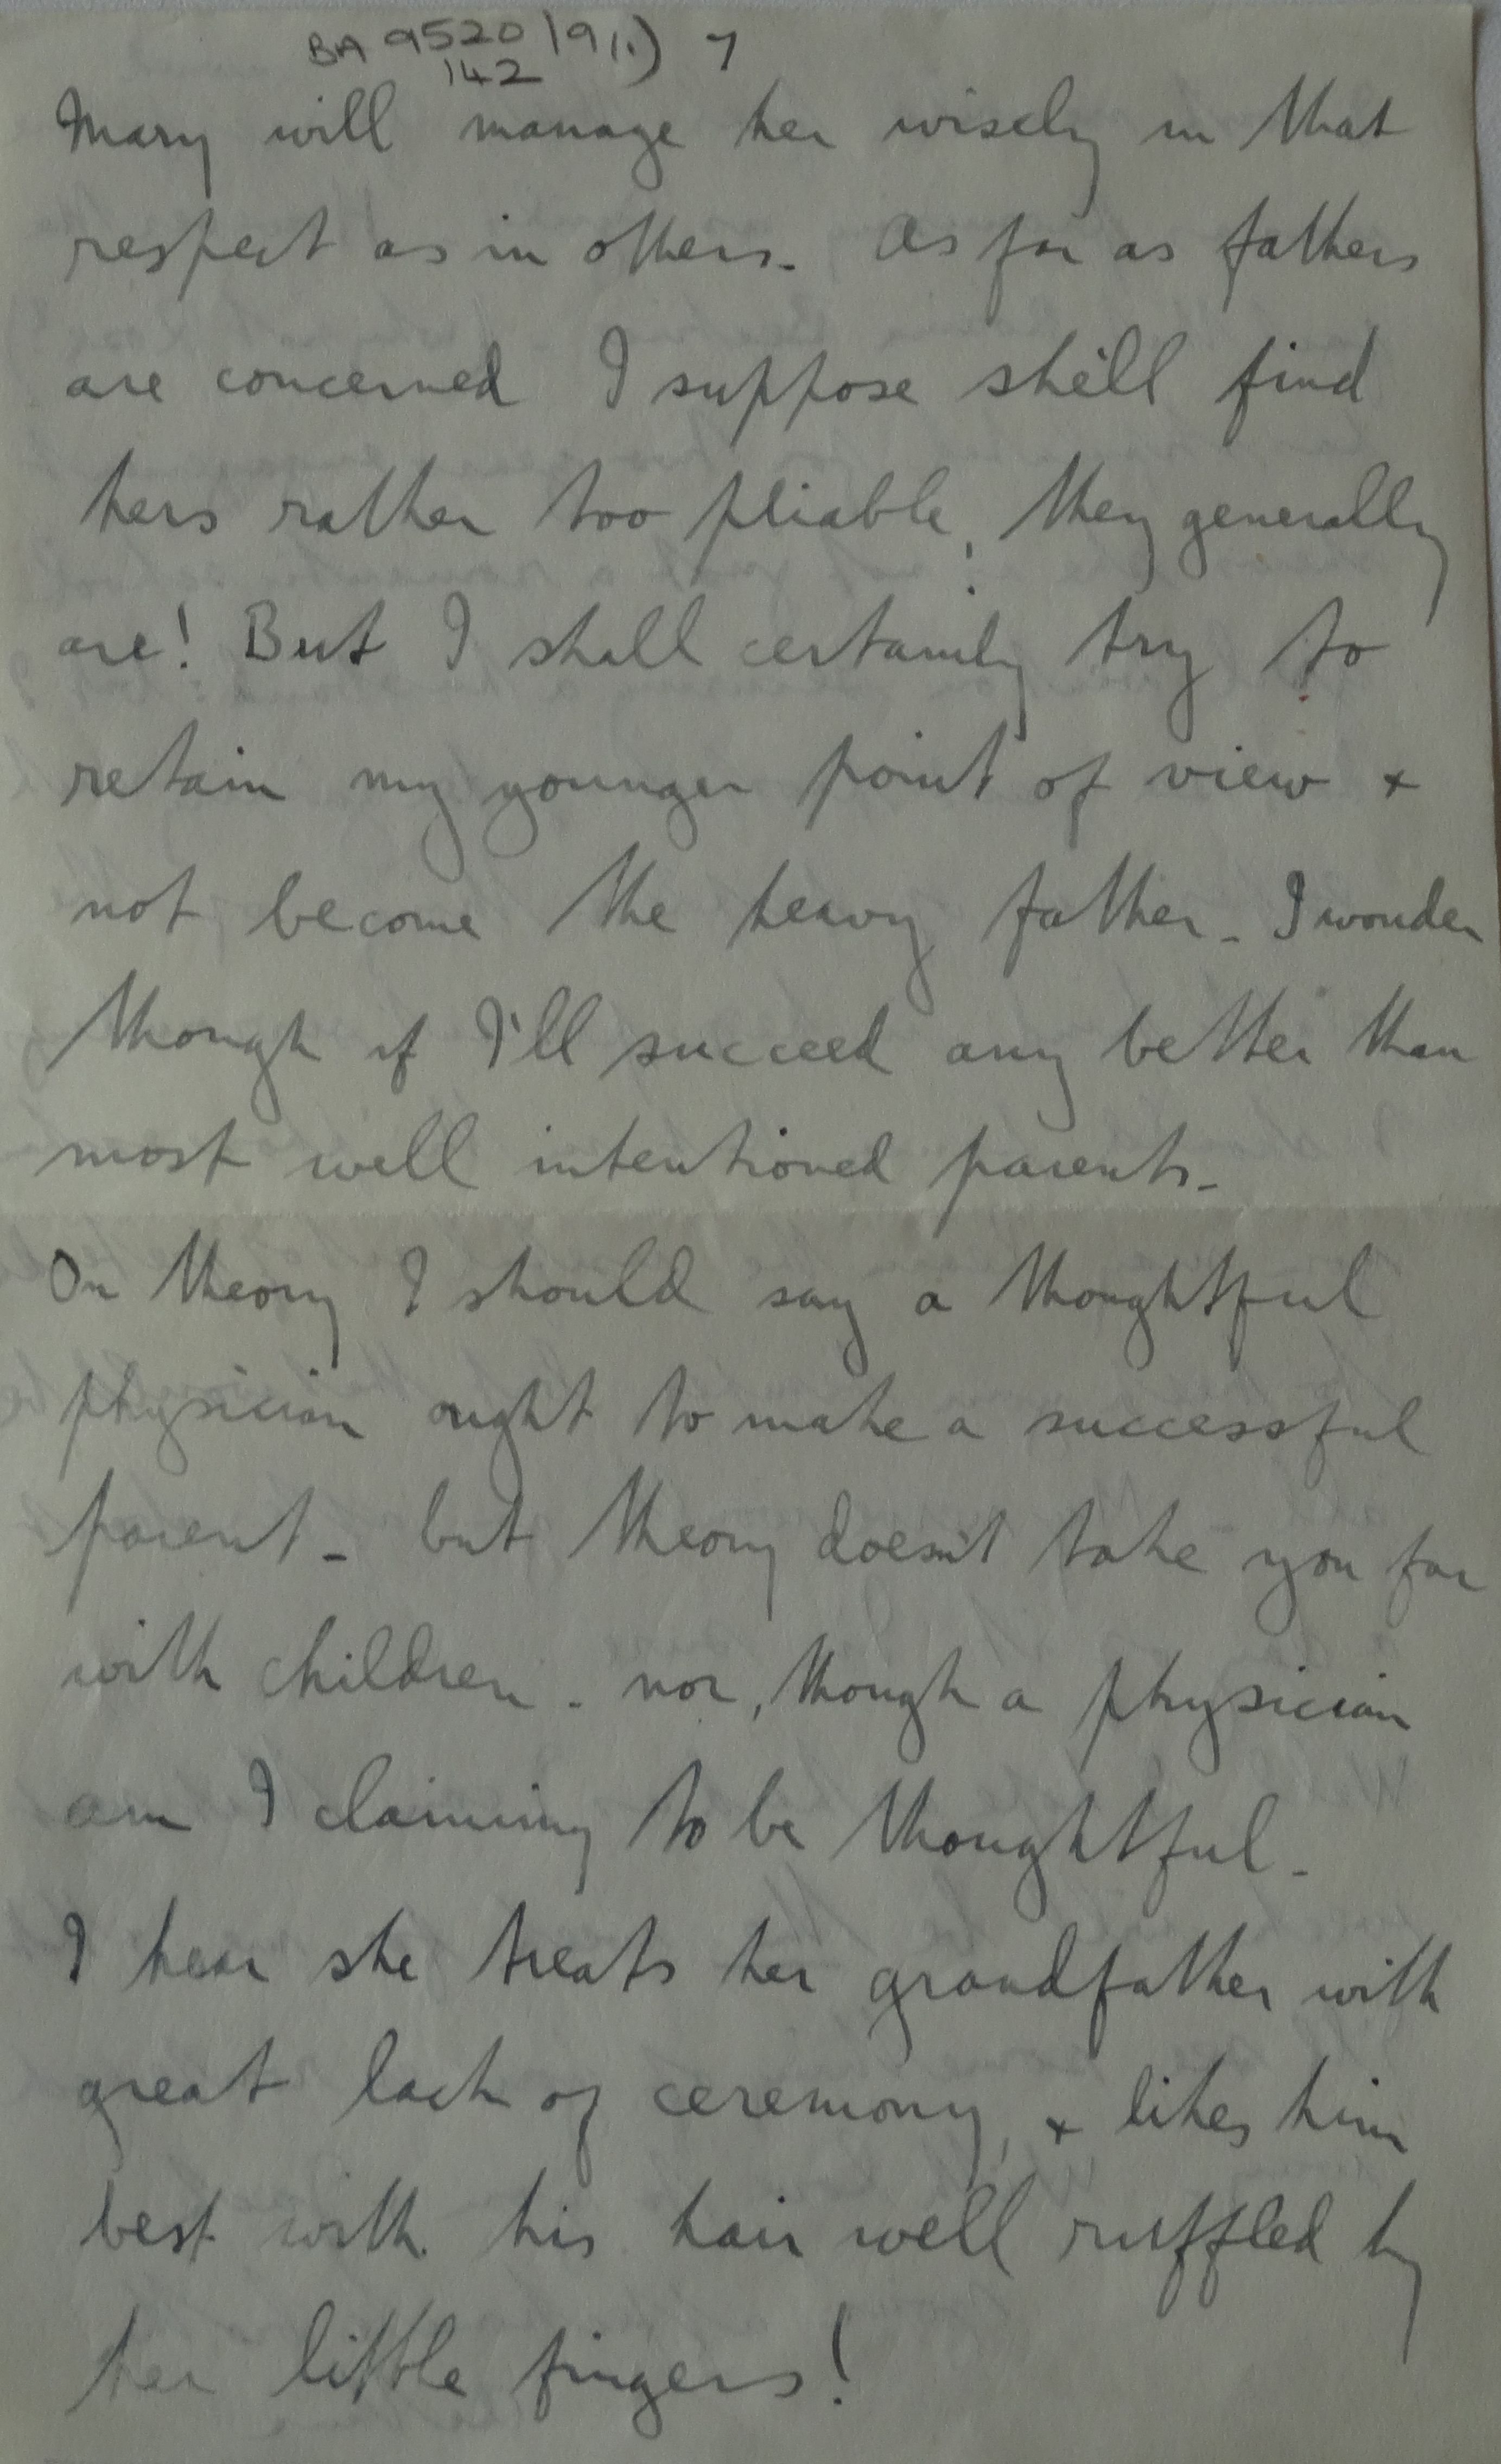 BA 9520/9(1) 7
142
Mary will manage her wisely in that
respect as in others. As far as fathers
are concerned I suppose she'll find
hers rather too pliable, they generally
are! But I shall certainly try to
retain my younger point of view +
not become the heavy father - I wonder
though if I'll succeed any better than
most well intentioned parents -
On theory I should say a thoughtful
physician ought to make a successful
parent - but theory doesn't take you far
with children - nor, though a physician
am I claiming to be thoughtful -
I hear she treats her grandfather with
great lack of ceremony, + likes him
best with his hair well ruffled by
her little fingers!